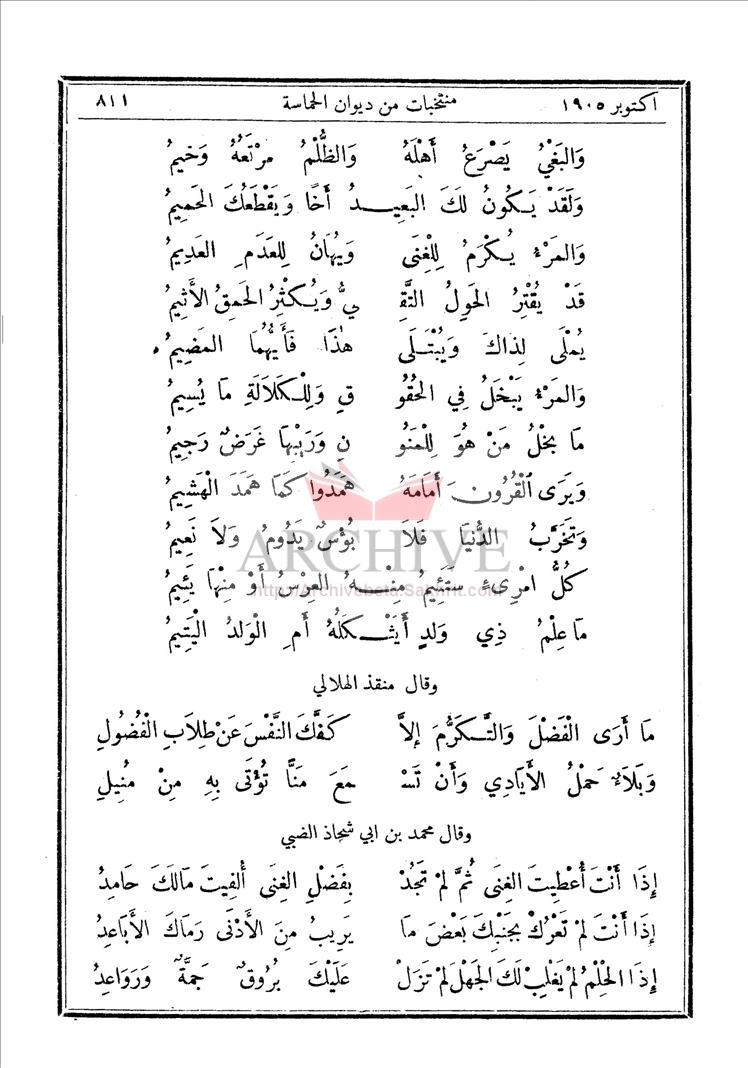 اكتوبر ١٩٠٥ منتخبات من ديوان الحماسة ٨١١
وَالبَغْيُ يَصْرَعُ أَهْلَهُ وَالظُّلْمُ مَرْتَعُهُ وَخيمُ
وَلَقَدْ يَكُونُ لَكَ البَعِيدُ أَخًا وَيَقْطَعُكَ الحَميمُ
وَالمَرْءُ يُكْرَمُ لِلْغِنَى وَيُهَانُ لِلعَدَمِ العَدِيمُ
قَدْ يُقْتِرُ الحَوِلُ التَّقِيُّ وَيُكْثِرُ الحَمِقُ الأَثِيمُ
يُمْلَى لِذَاكَ وَيُبْتَلَى هذَا فَأَيُّهُمَا المَضِيمُ
وَالمَرْءُ يَبْخَلُ فِي الحُقُوقِ وَلِلْكَلَالَةِ مَا يُسِيمُ
مَا بُخْلُ مَنْ هُوَ لِلْمَنُونِ وَرَيْبِهَا غَرَضٌ رَجِيمُ
وَيَرَى القُرُونَ أَمَامَهُ هَمَدُوا كَمَا هَمَدَ الْهَشِيمُ
وَتَخَرَّبُ الدُّنْيَا فَلَا بُؤْسٌ يَدُومُ وَلَا نَعِيمُ
كُلُّ امْرِىءٍ سَتَئِيمُ مِنْهُ العِرْسُ أَوْ مِنْهَا يَئِيمُ
مَا عِلْمُ ذِي وَلَدٍ أَيَثْكَلُهُ أَمِ الْوَلَدُ الْيَتِيمُ
وقال منقذ الهلالي
مَا أَرَى الْفَضْلَ وَالتَّكَرُّمَ إِلاَّ كَفَّكَ النَّفْسَ عَنْ طِلَابِ الْفُضُولِ
وَبَلَاءٌ حَمْلُ الأَيَادِي وَأَنْ تَسْمَعَ مَنًّا تُؤْتَى بِهِ مِنْ مُنِيلِ
وقال محمد بن ابي شحاذ الضبي
إِذَا أَنْتَ أُعْطِيتَ الغِنَى ثُمَّ لَمْ تَجُدْ بِفَضْلِ الغِنَى أُلْفِيتَ مَالَكَ حَامِدُ
إِذَا أَنْتَ لَمْ تَعْرُكْ بِجَنْبِكَ بَعْضَ مَا يَرِيبُ مِنَ الأَدْنَى رَمَاكَ الأَبَاعِدُ
إِذَا الحِلْمُ لَمْ يَغْلِبْ لَكَ الجَهْلَ لَمْ تَزَلْ عَلَيْكَ بُرُوقٌ جَمَّةٌ وَرَوَاعِدُ
ARCHIVE
http://Archivebeta.Sakhrit.com